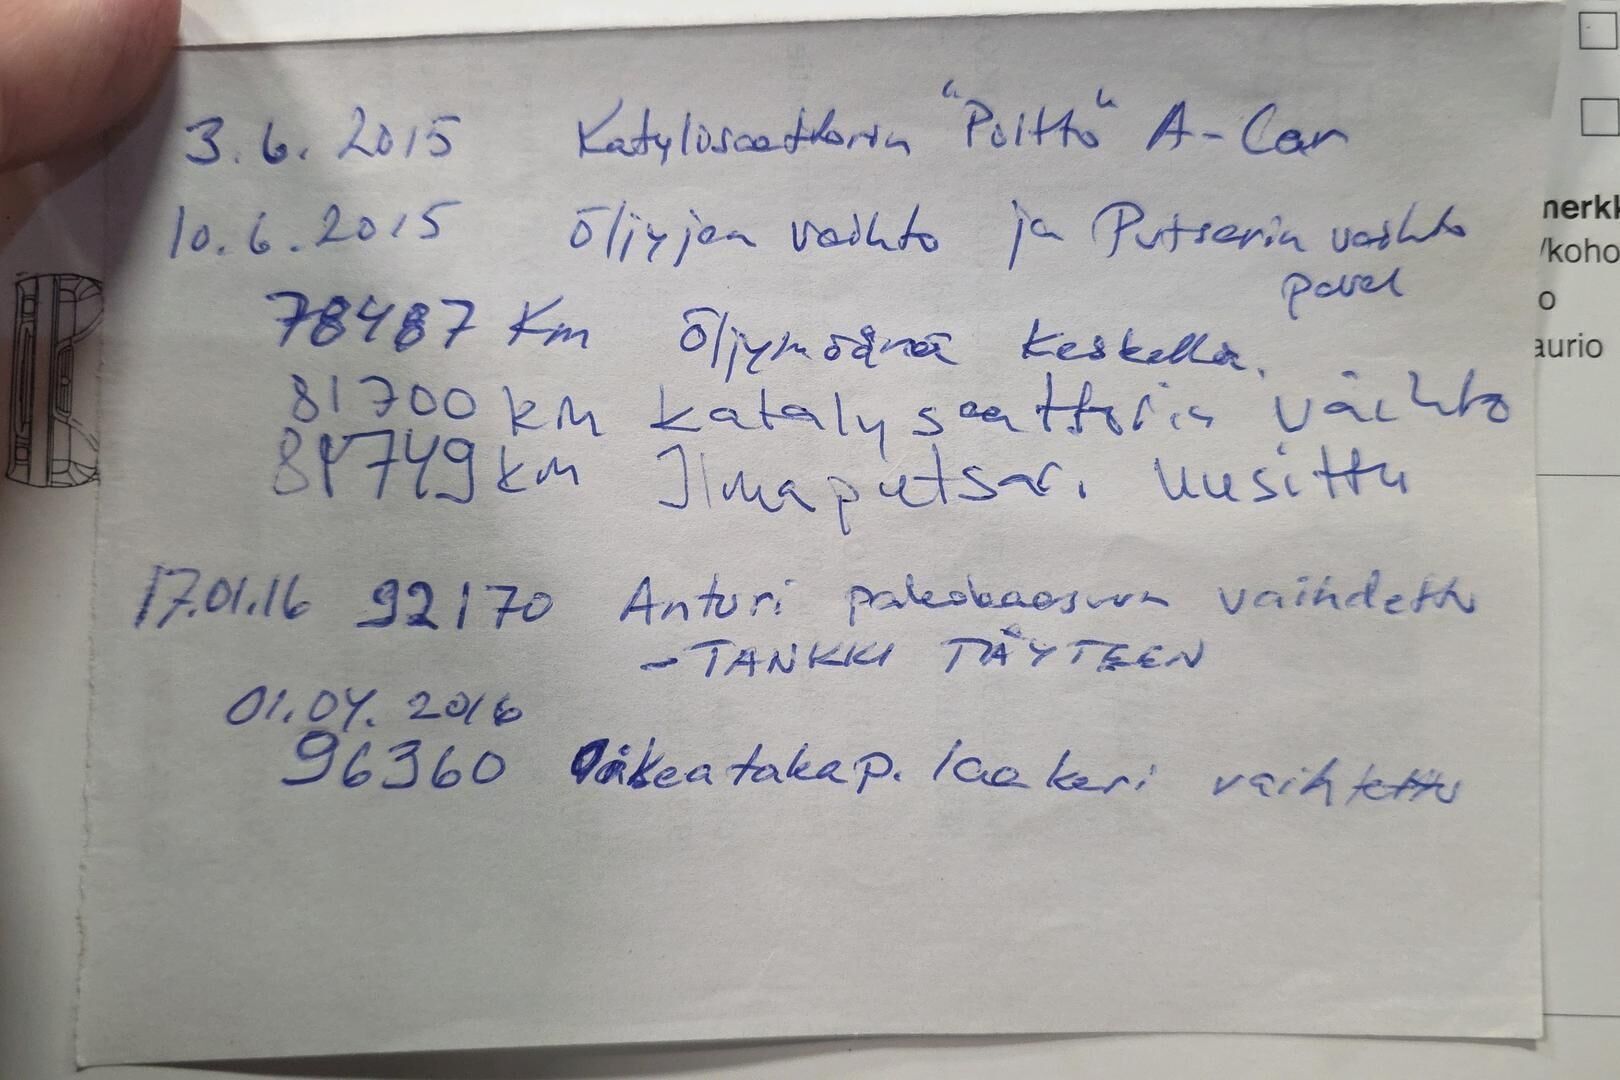 3.6.2015 Katylysaattorin "Poltto" A-Car
10.6.2015 Öljyjen vaihto ja Putserin vaihto
78487 Km Öljymäärä keskellä.
81700 km katalysaattorin vaihto
84749 km Ilmaputsari uusittu
17.01.16 92170 Anturi pakokaasuun vaihdettu
- TANKKI TÄYTEEN
01.04.2016
96360 Oikea takap. laakeri vaihtettu
merkk
/koho
o
aurio